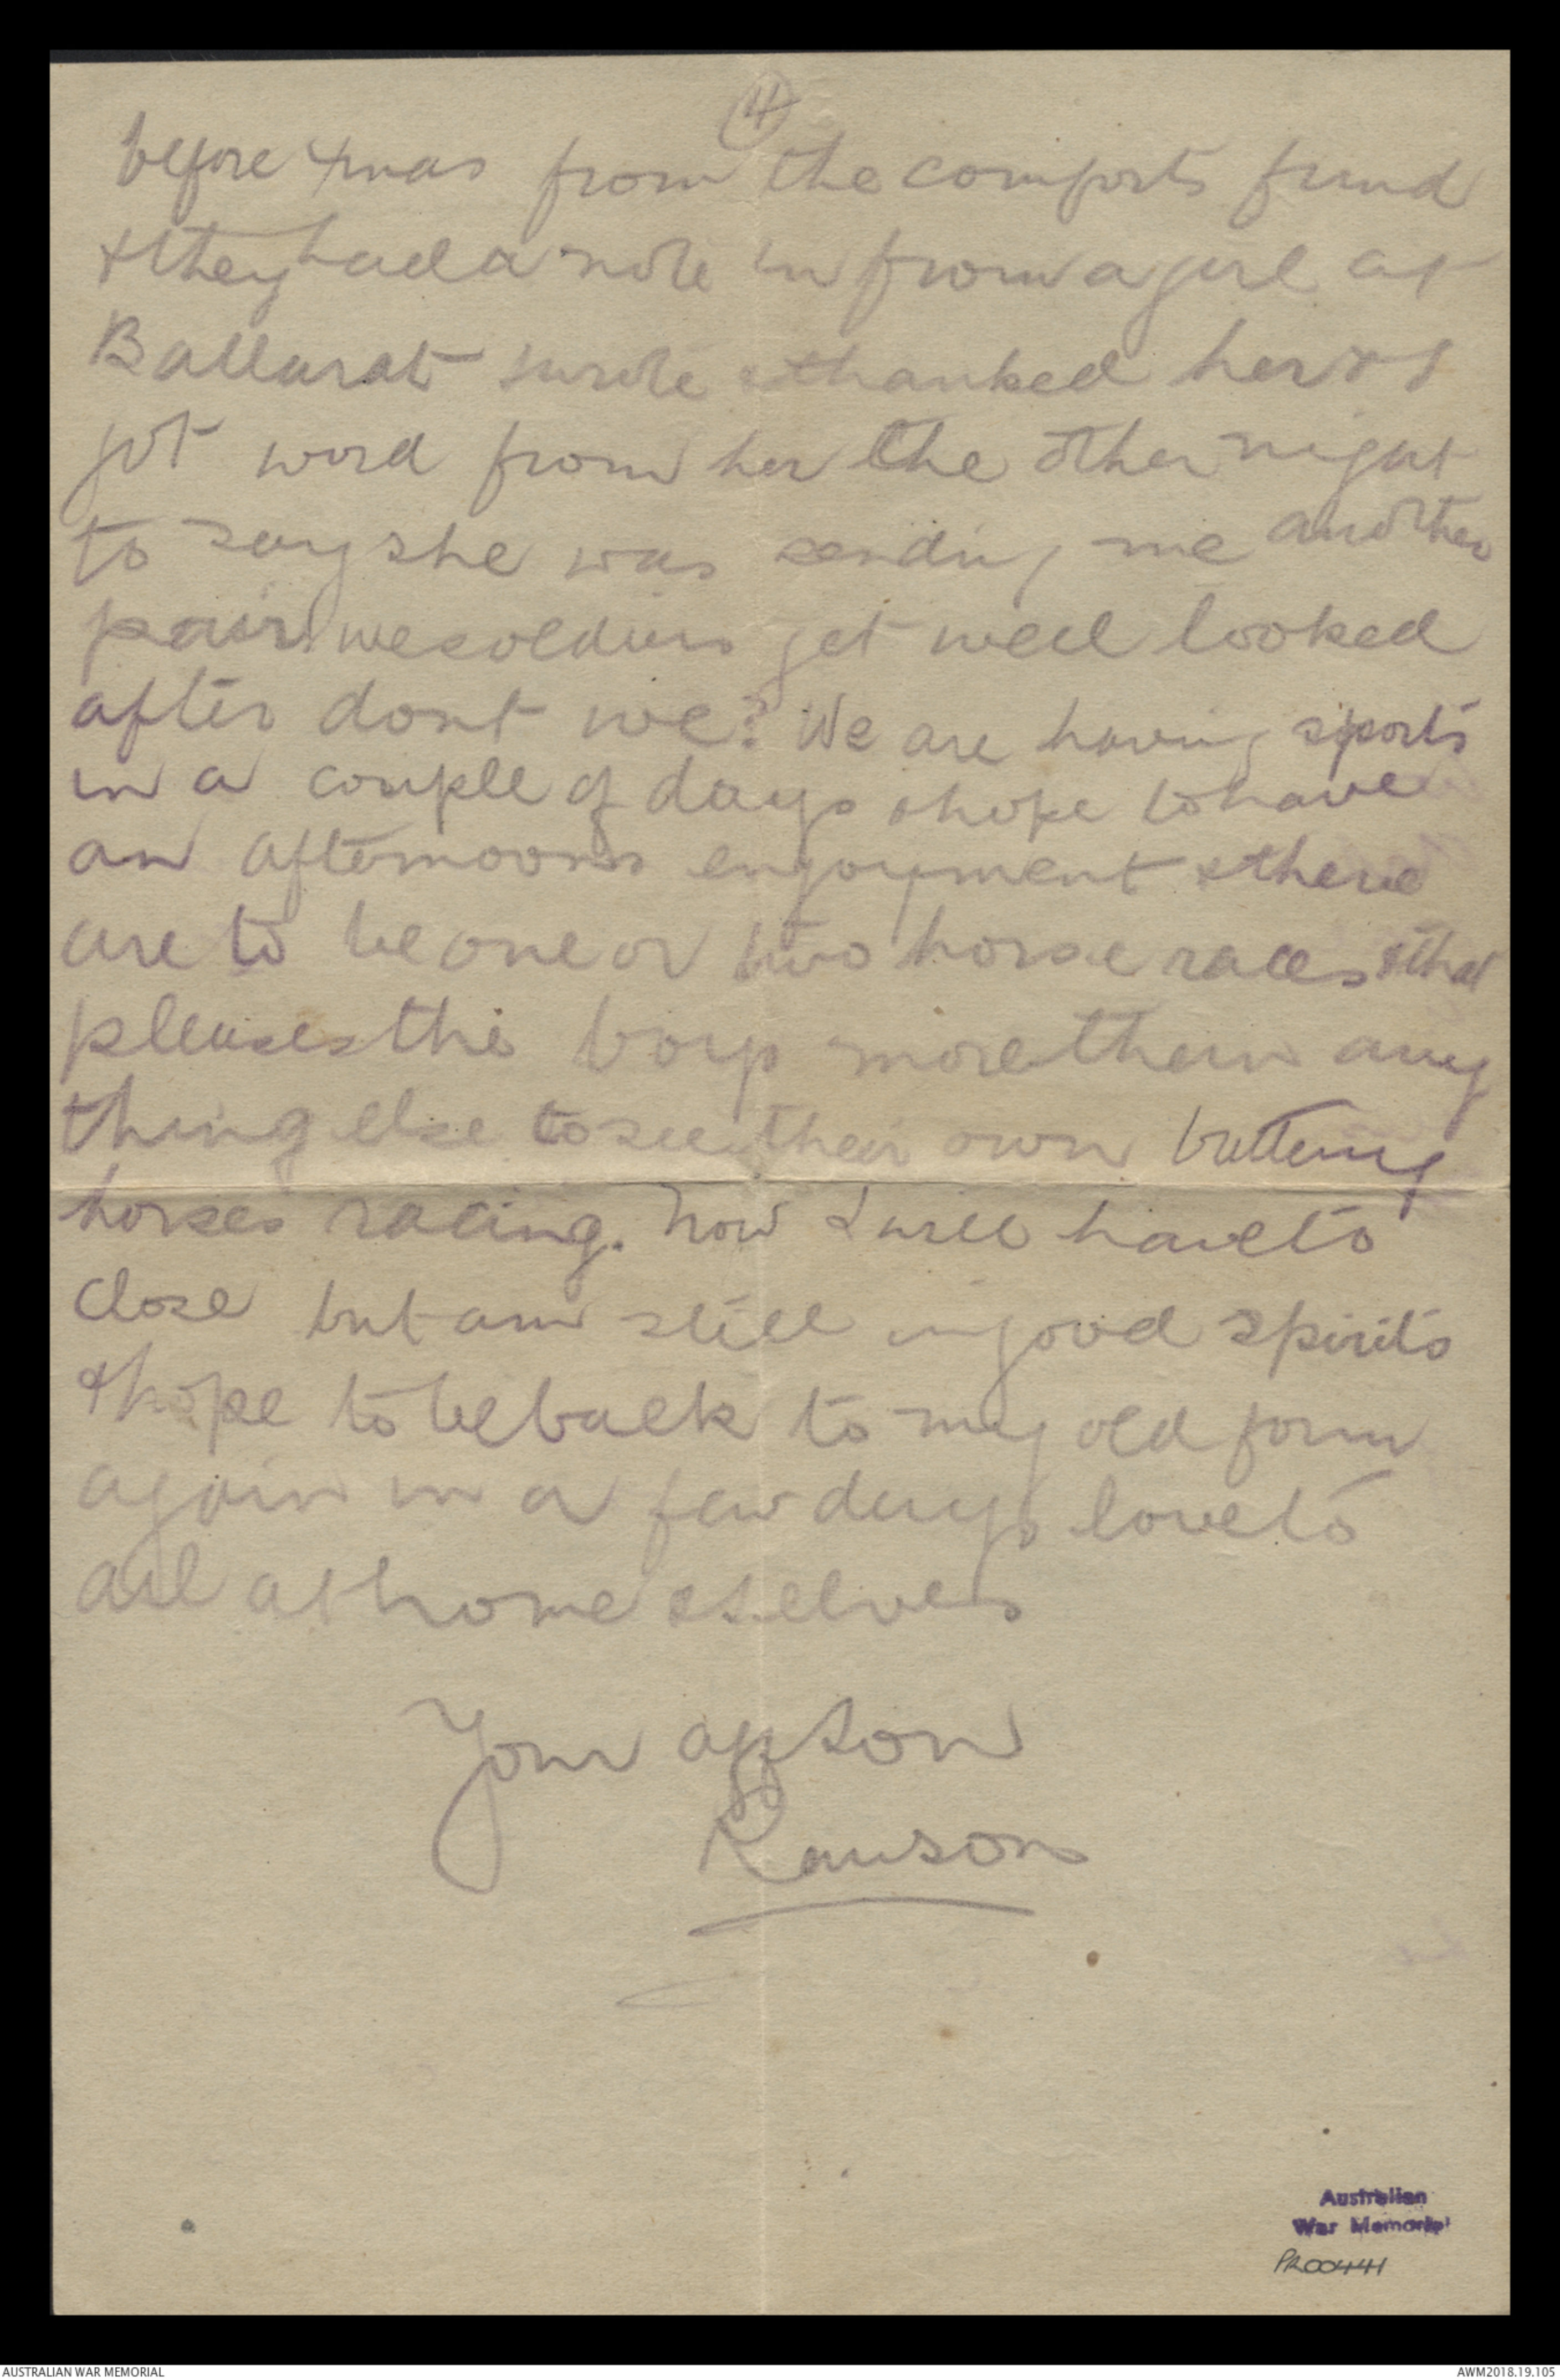 4
before Xmas from the comforts fund
& they had a note in from a girl at
Ballarat I wrote & thanked her & I
got word from her the other night
to say she was sending me another
pair. we soldiers get well looked
after dont we? We are having sports
in a couple of days & hope to have
an afternoons enjoyment & there
are to be one or two horse races & that
pleases the boys more than any
thing else to see their own battery
horses racing. Now I will have to
close but am still in good spirits
& hope to be back to my old form
again in a few days love to
all at home & selves
Your aff son
Rawson
Australian
War Memorial
PR00441
AUSTRALIAN WAR MEMORIAL
AWM2018.19.105